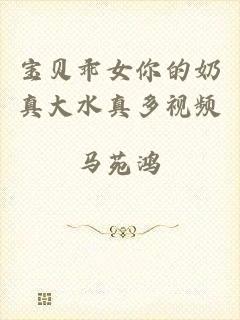 宝贝乖女你的奶
真大水真多视频
马苑鸿